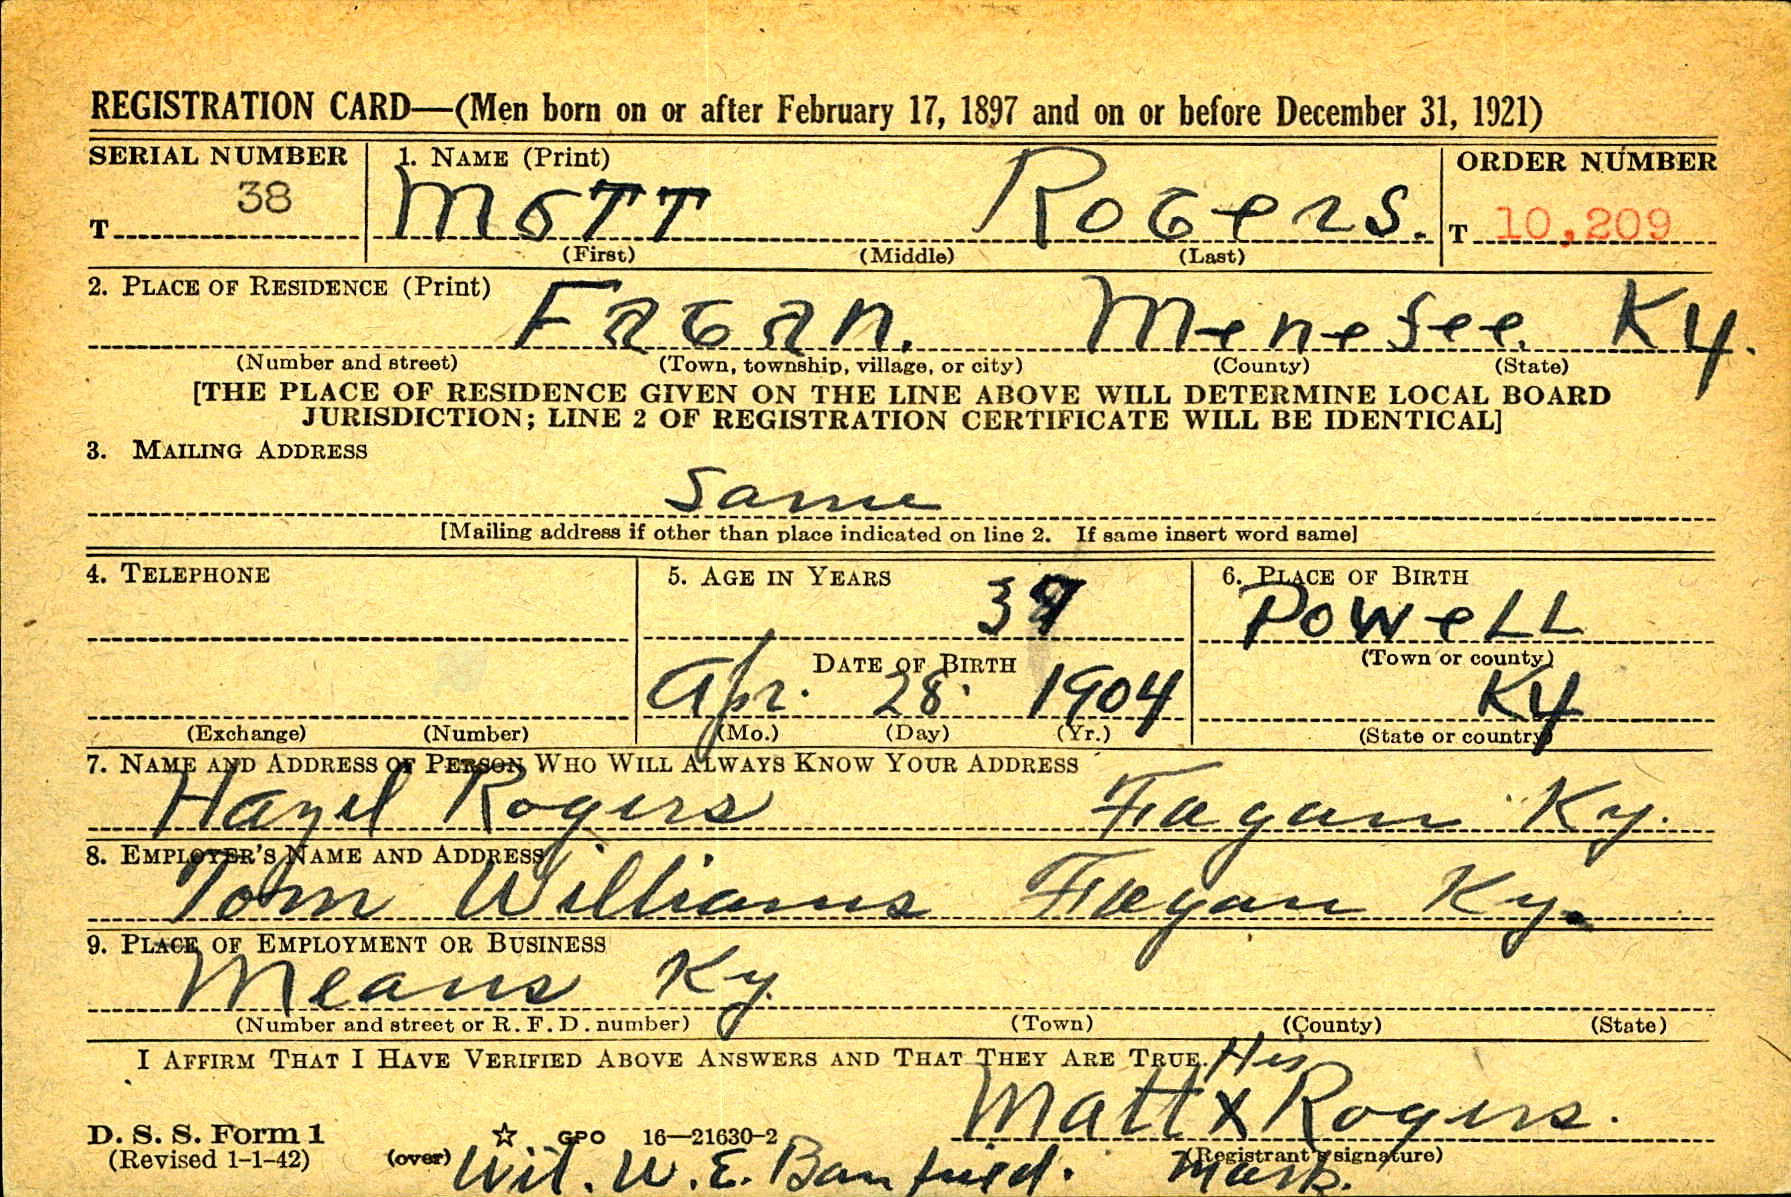 REGISTRATION CARD—(Men born on or after February 17, 1897 and on or before December 31, 1921)
SERIAL NUMBER 1. NAME (Print) ORDER NUMBER
T 38 MOTT ROGERS. T 10,209
(First) (Middle) (Last)
2. PLACE OF RESIDENCE (Print)
FAGAN. Menesee. Ky.
(Number and street) (Town, township, village, or city) (County) (State)
[THE PLACE OF RESIDENCE GIVEN ON THE LINE ABOVE WILL DETERMINE LOCAL BOARD
JURISDICTION; LINE 2 OF REGISTRATION CERTIFICATE WILL BE IDENTICAL]
3. MAILING ADDRESS
Same
[Mailing address if other than place indicated on line 2. If same insert word same]
4. TELEPHONE 5. AGE IN YEARS 6. PLACE OF BIRTH
37 POWELL
DATE OF BIRTH (Town or county)
Apr. 28. 1904 Ky
(Exchange) (Number) (Mo.) (Day) (Yr.) (State or country)
7. NAME AND ADDRESS OF PERSON WHO WILL ALWAYS KNOW YOUR ADDRESS
Hazel Rogers Fagan Ky.
8. EMPLOYER'S NAME AND ADDRESS
Tom Williams Fagan Ky.
9. PLACE OF EMPLOYMENT OR BUSINESS
Means Ky.
(Number and street or R. F. D. number) (Town) (County) (State)
I AFFIRM THAT I HAVE VERIFIED ABOVE ANSWERS AND THAT THEY ARE TRUE.
His
Matt x Rogers.
D. S. S. Form 1 ☆ GPO 16—21630-2
(Revised 1-1-42) (over) (Registrant's signature)
Wit. W. E. Banfield. Mark.